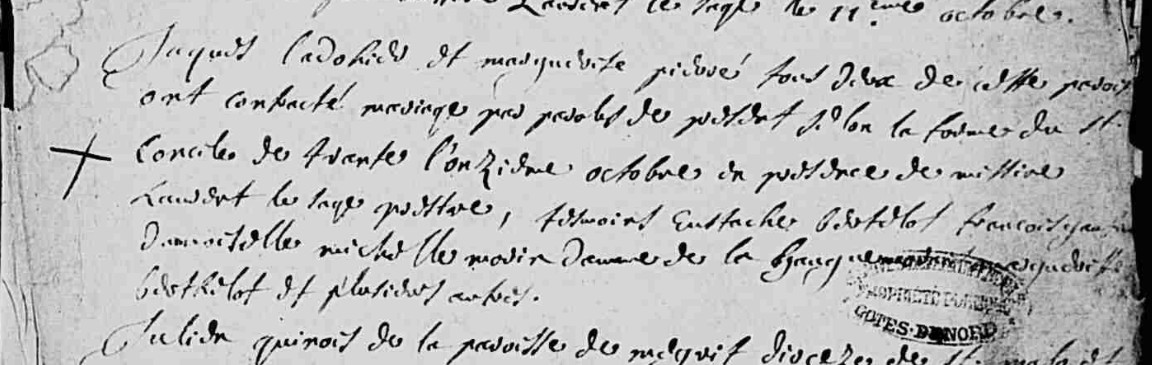 Laurent le sage le 11.eme octobre.
Jaques ladohier et marguerite pierré tous deux de cette parois
ont contracté mariage par paroles de present selon la forme du St.
Concile de trante l'onzieme octobre en presence de missire
Laurent le sage prettre, tesmoins Eustache bertelot francois
Damoiselle michelle morin Damme de la marguerite
berthelot et plusieurs autres.
Julien quinois de la paroisse de megrit dioceze de St. malo et
PROPRIÉTÉ PUBLIQUE
COTES-DU-NORD